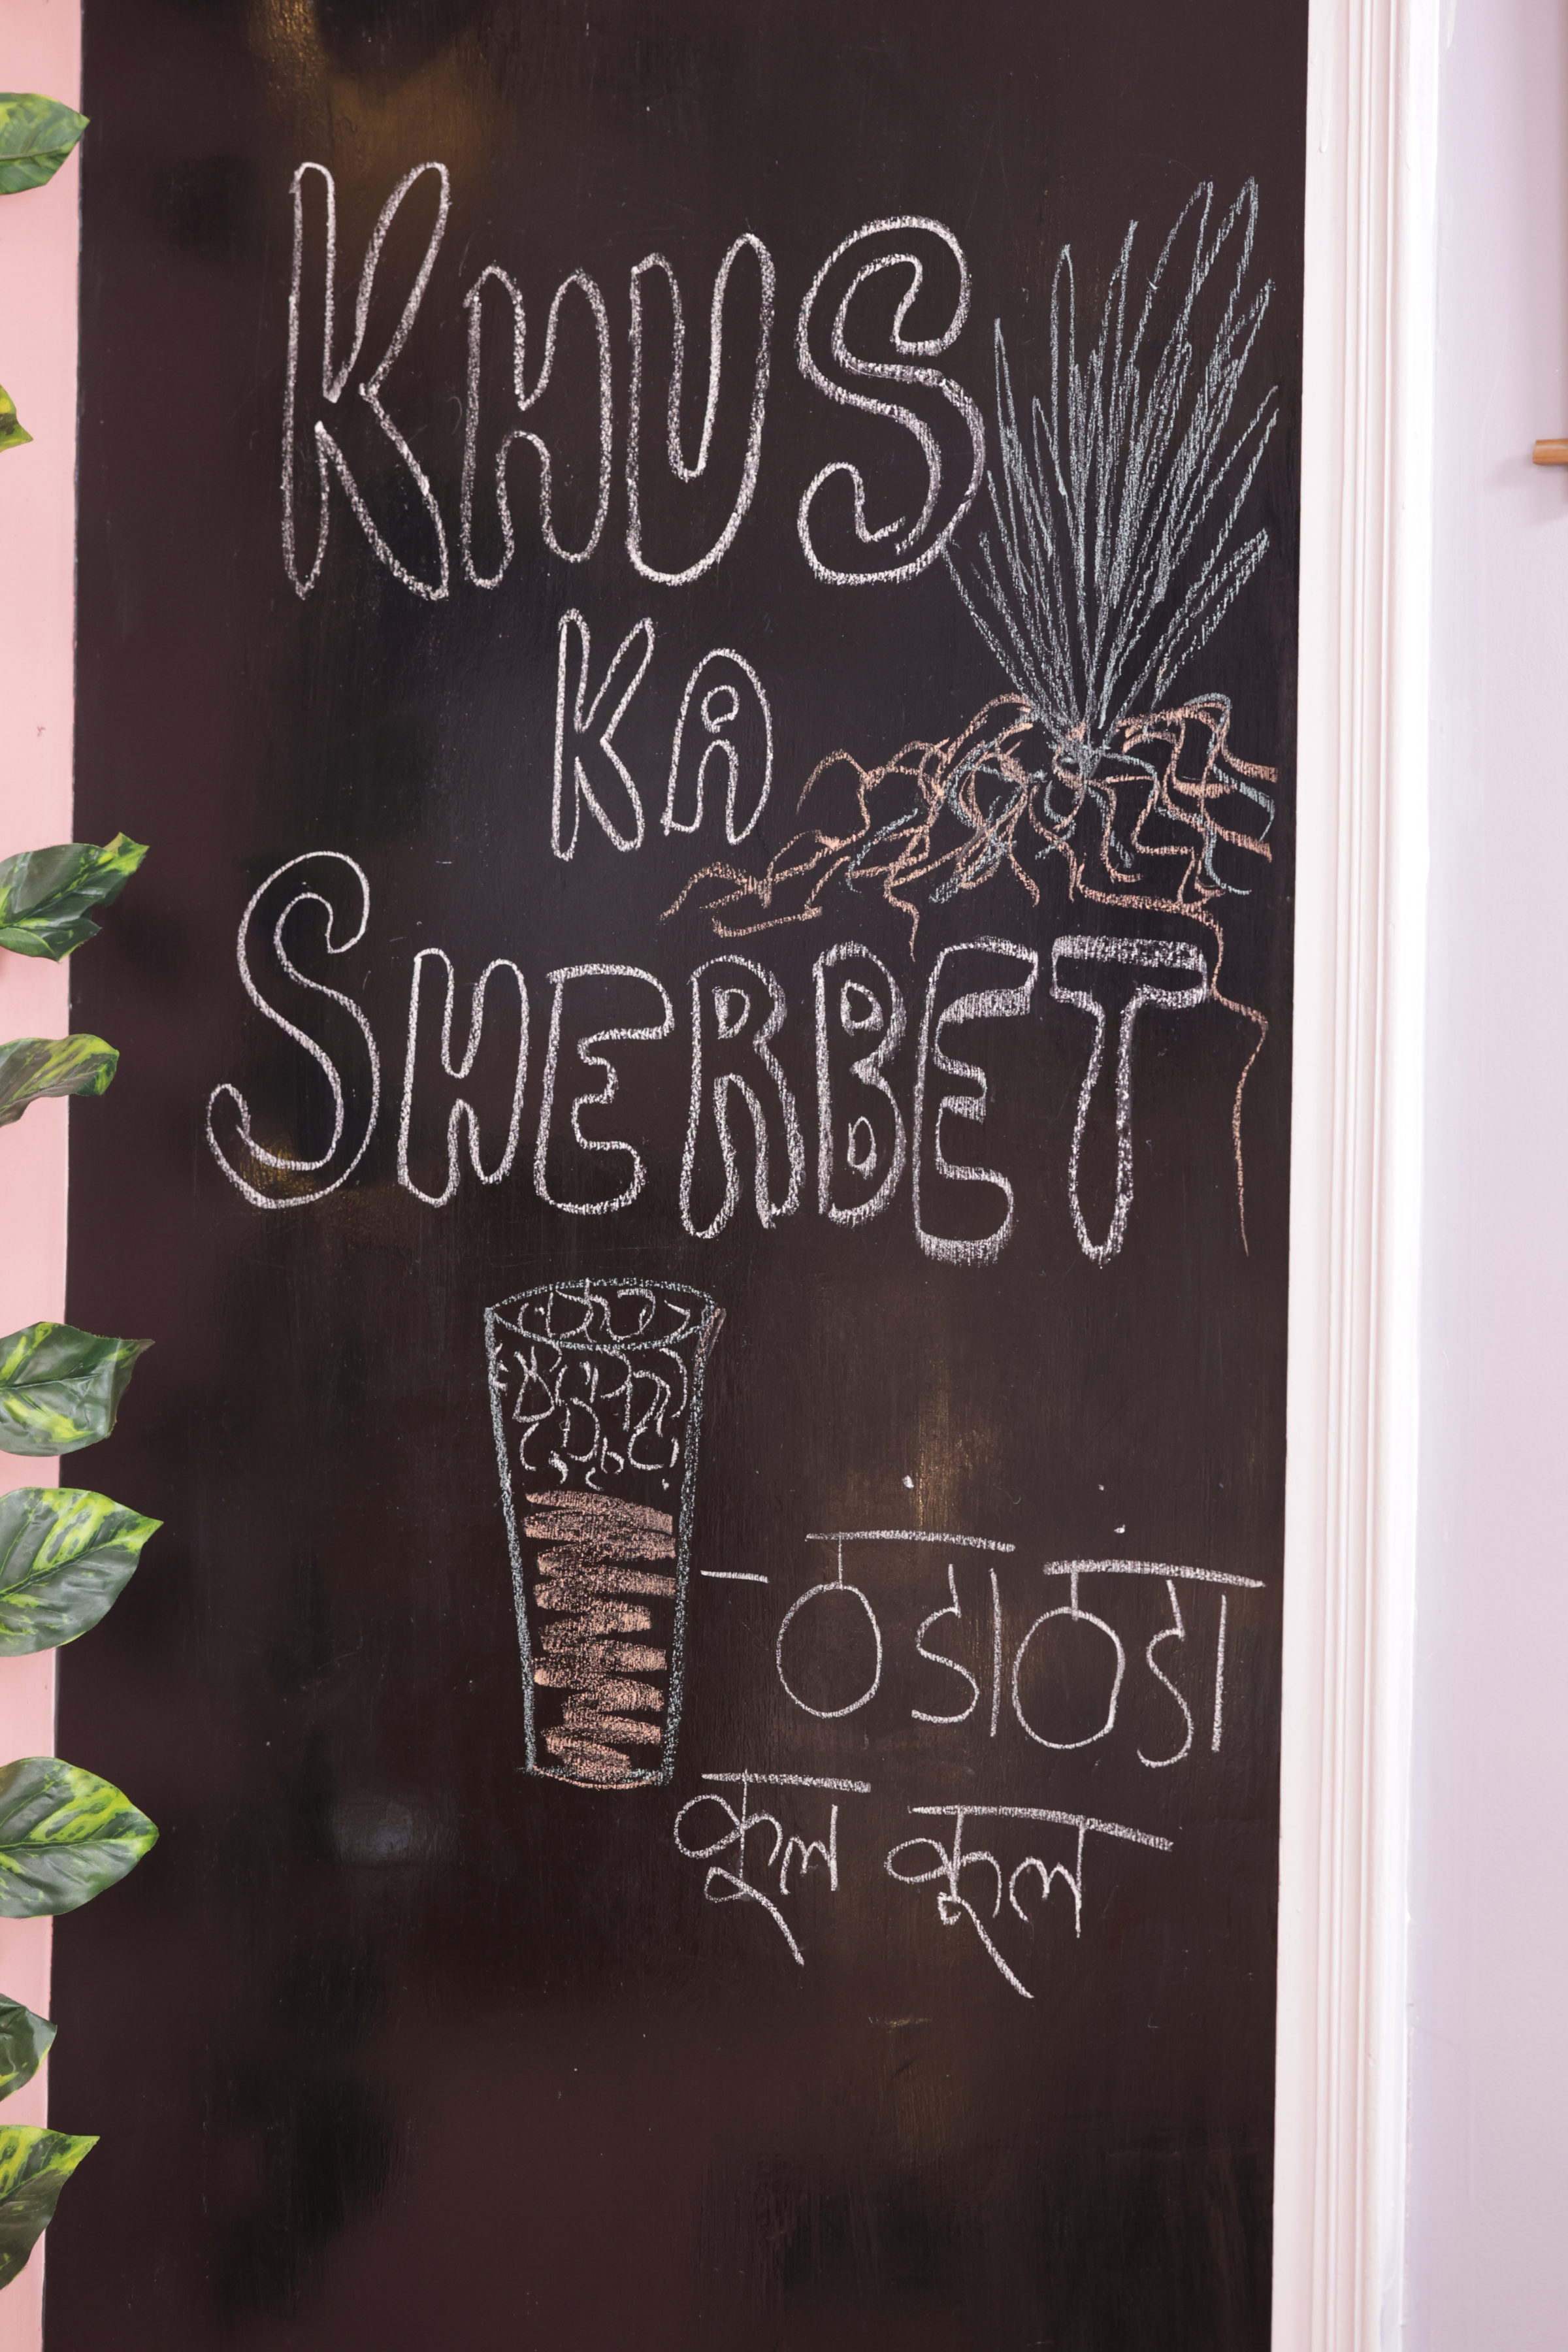 KHUS
KA
SHERBET
- ठंडा ठंडा
कूल कूल